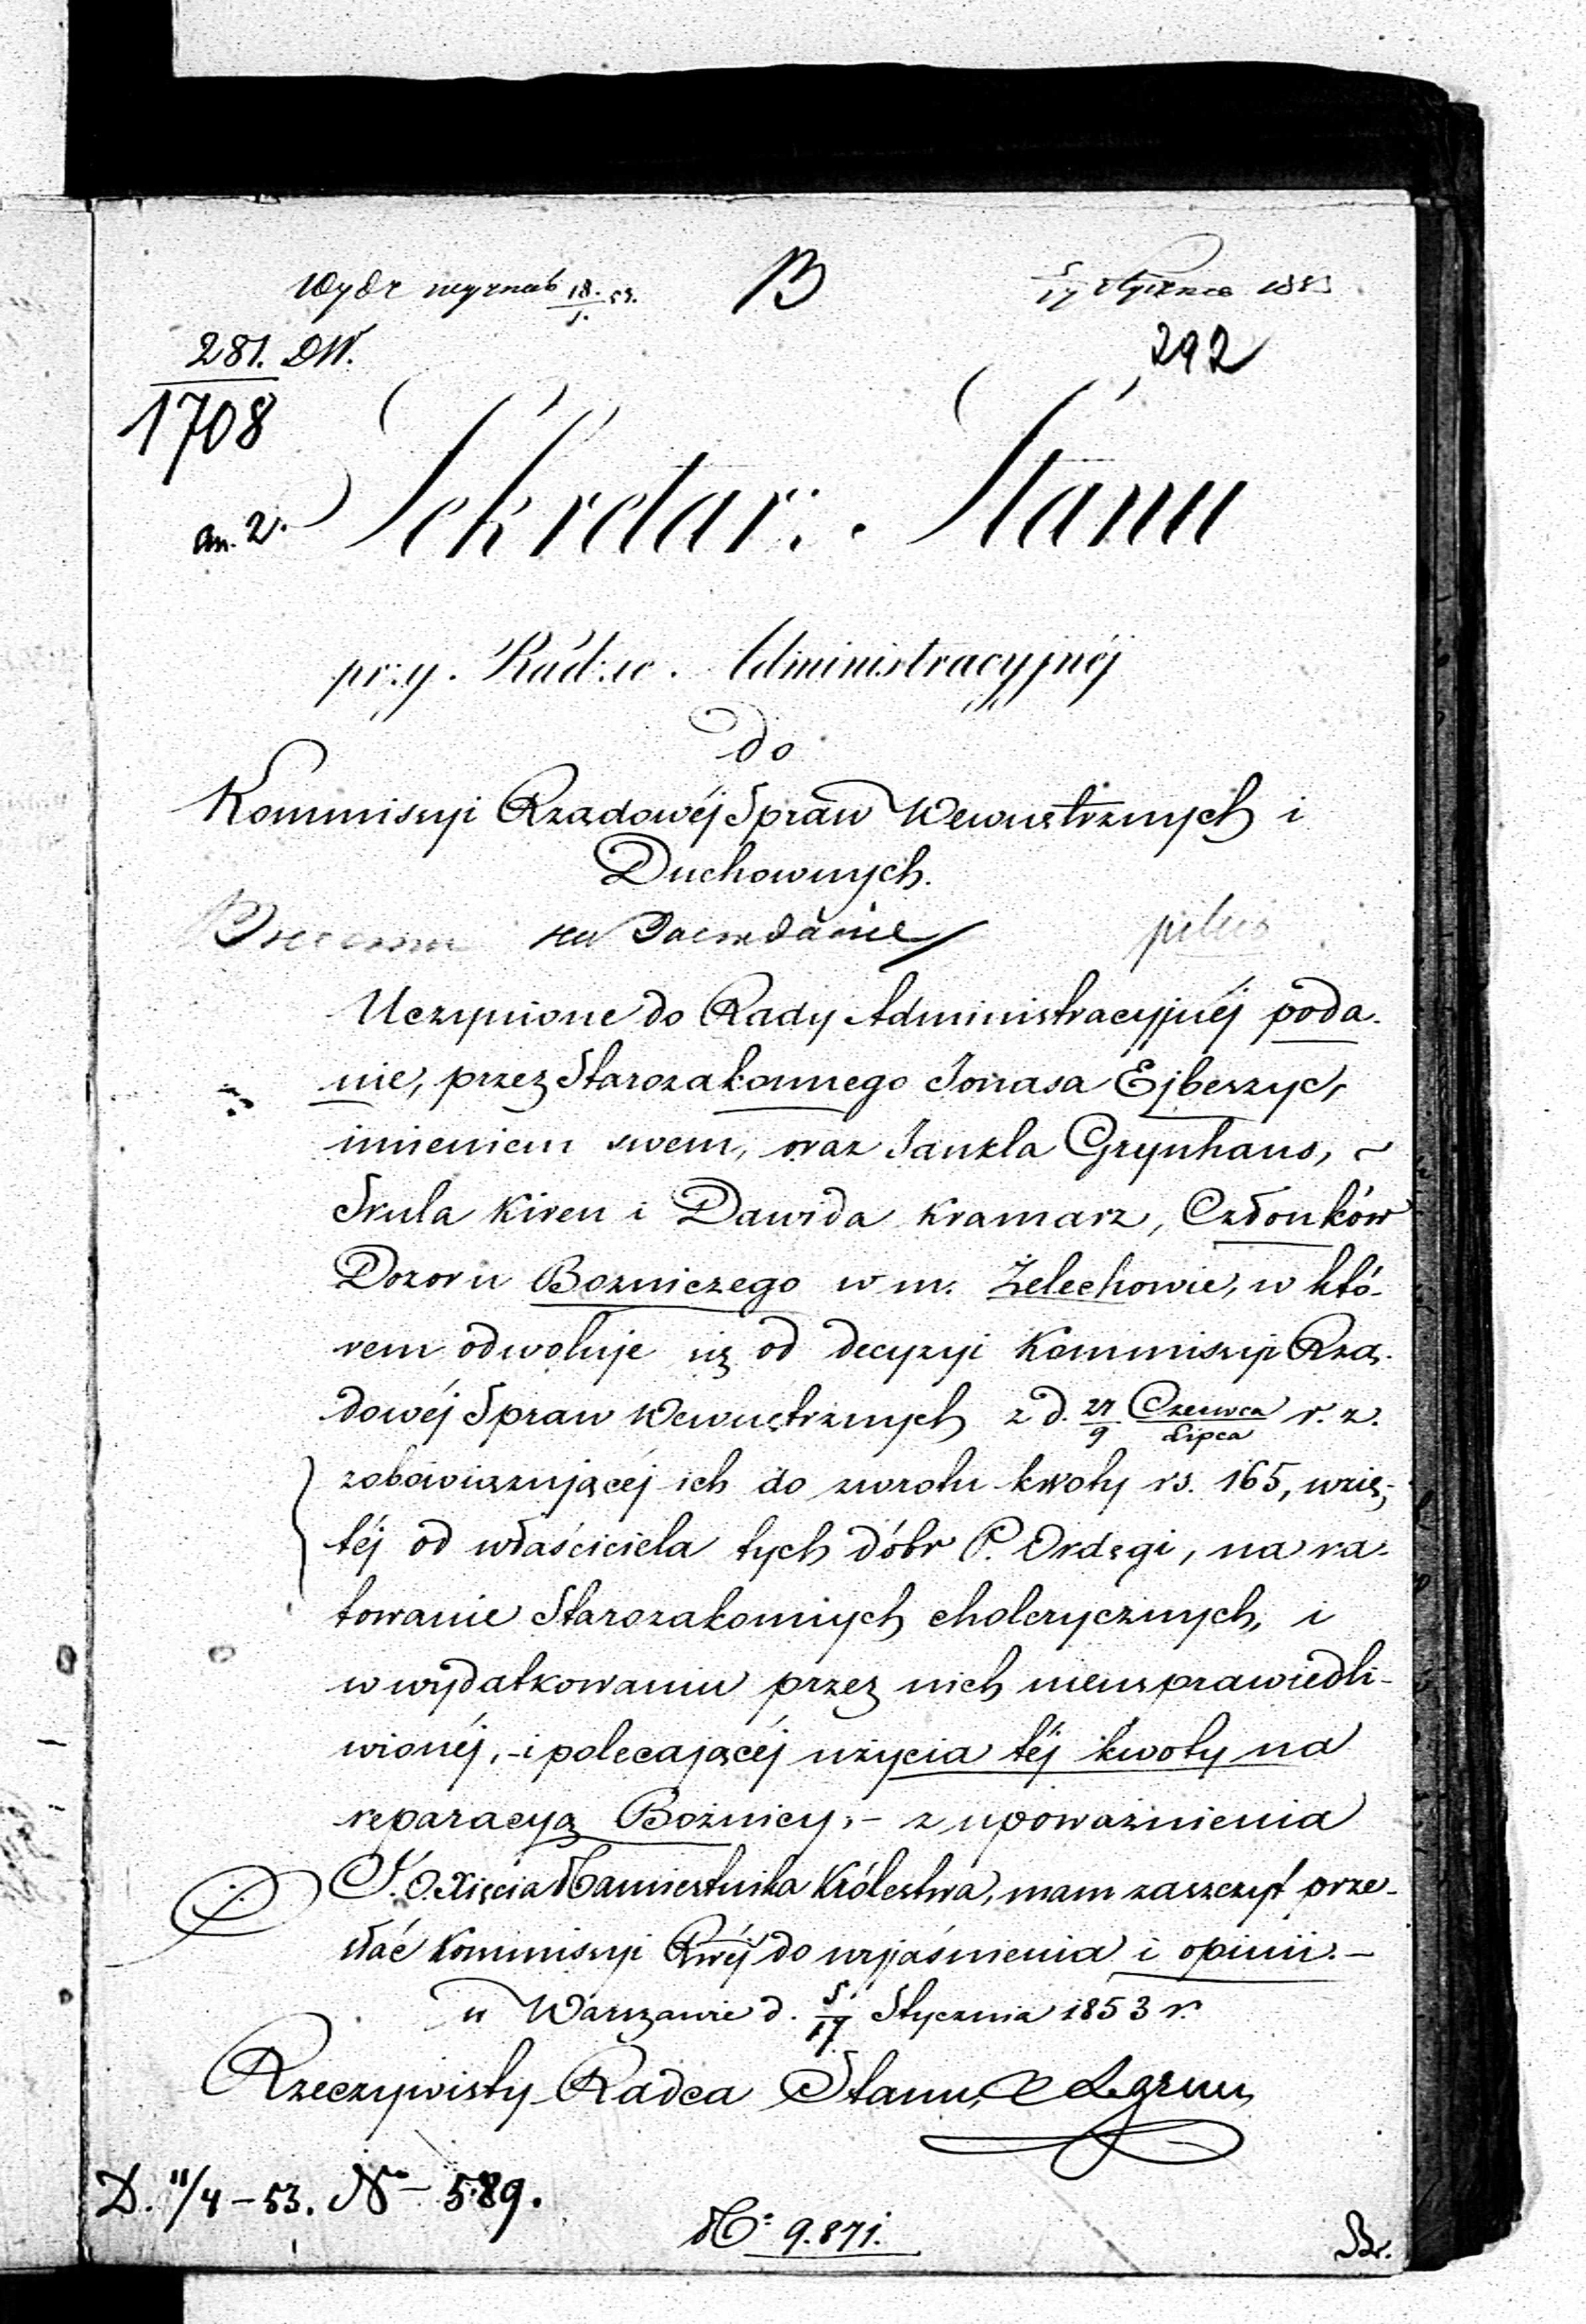 Wydz wyznań 18./1. 53.
B
5/17 Stycznia 1853
281. DW.
292
1708
an. 2.
Sekretarz Stanu
przy Radzie Administracyjnéj
do
Kommisyi Rządowéj Spraw Wewnętrznych i
Duchownych.
Uczynione do Rady Administracyjnéj poda-
nie, przez Starozakonnego Jonasa Ejbeszyc,
imieniem swem, oraz Jankla Grynhaus, ~
Srula Kiren i Dawida Kramarz, Członków
Dozoru Bozniczego w m. Żelechowie, w któ-
rem odwołuje się od decyzyi Kommisyi Rzą-
dowéj Spraw Wewnętrznych z d. 27/9 Czerwca/Lipca r. z.
zobowiązującéj ich do zwrotu kwoty rs. 165, wzię-
téj od właściciela tych dóbr P. Ordęgi, na ra-
towanie Starozakonnych cholerycznych, i
w wydatkowaniu przez nich nieusprawiedli-
wionéj, - i polecającéj użycia téj kwoty na
reparacyą Bożnicy, - z upoważnienia
J. O. Xięcia Namiestnika Królestwa, mam zaszczyt prze-
słać Kommisyi Rwéj do wyjaśnienia i opinii. -
w Warszawie d. 5/17 Stycznia 1853 r.
Rzeczywisty Radca Stanu,
D. 11/4 - 53. No 589.
N: 9.871.
Br.